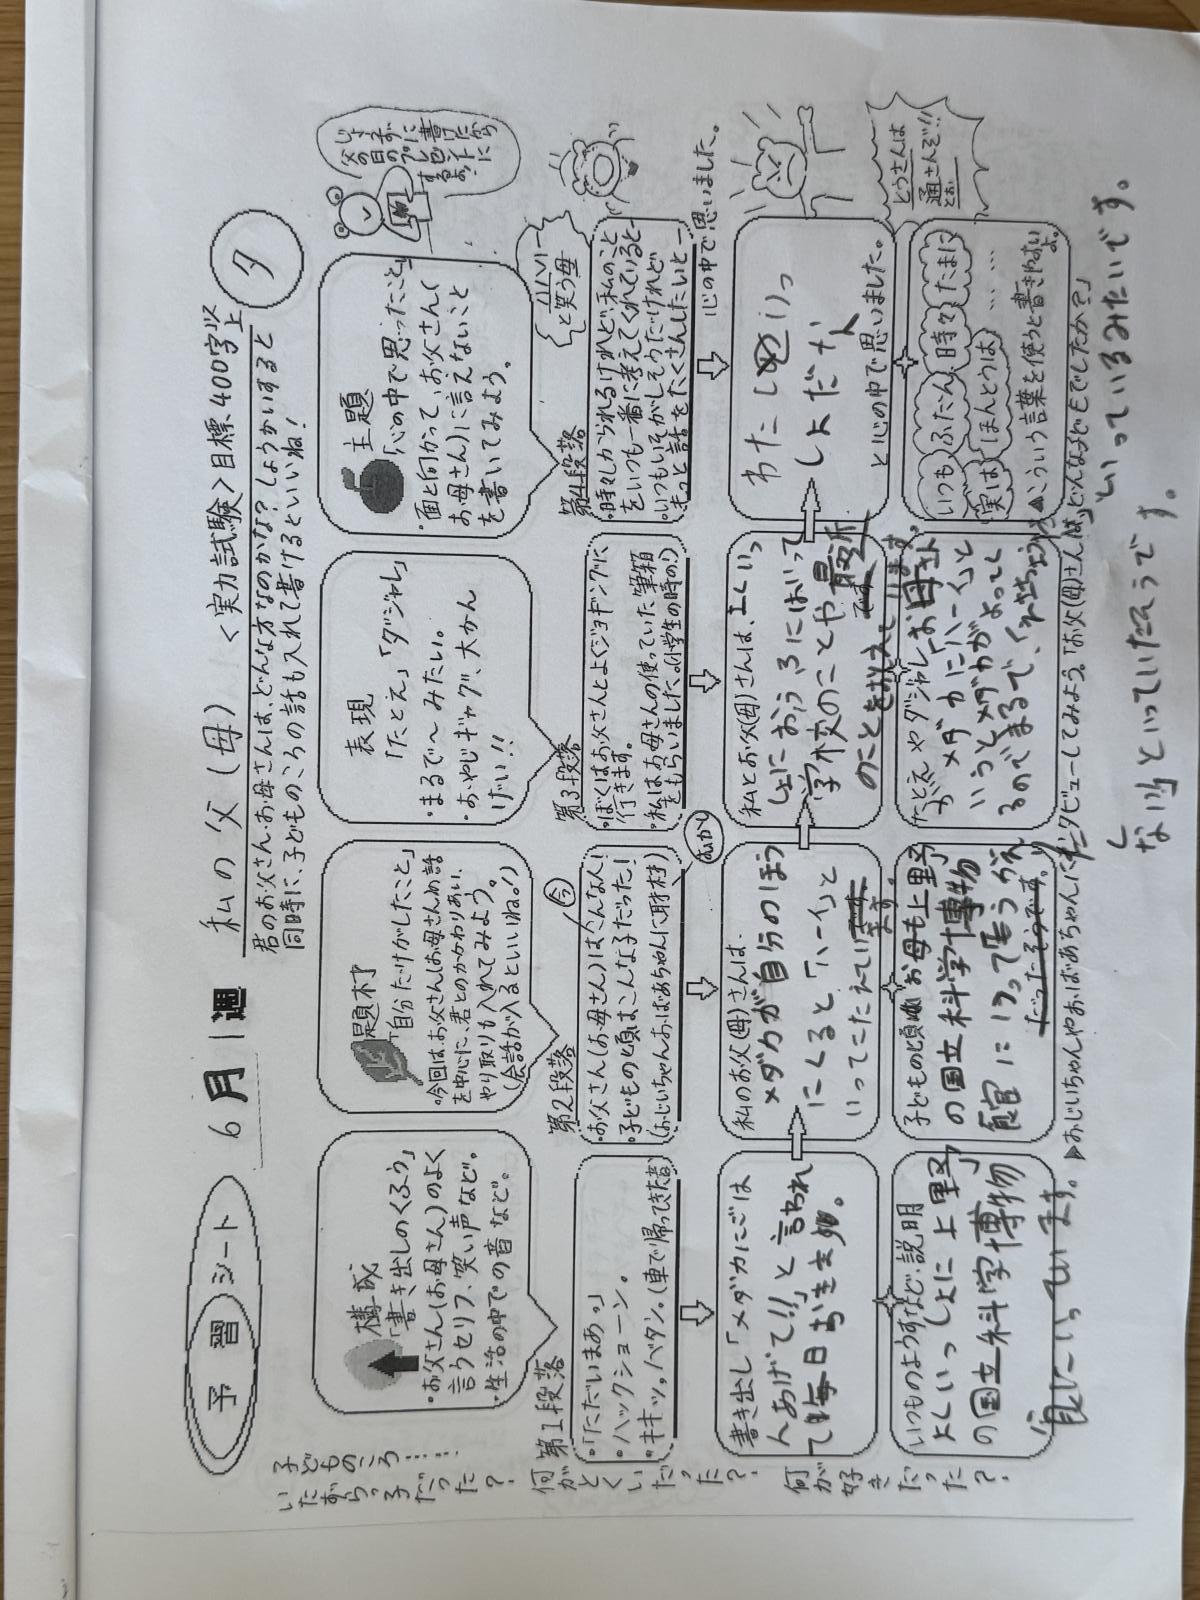 予習シート
6月1週
私の父(母)
<実力試験>目標、400字以上
夕
君のお父さん、お母さんは、どんな方なのかな?しょうかいすると
同時に、子どものころの話も入れて書けるといいね!
子どものころ……
いたずらっ子だった?
何がとくいだった?
何が好きだった?
構成
「書き出しのくふう」
・お父さん(お母さん)のよく
言うセリフ、笑い声など。
・生活の中での音など。
題材
「自分だけがしたこと」
・今回は、お父さん(お母さん)の話
を中心に、君とのかかわりあい、
やり取りも入れてみよう。
(会話が入るといいね。)
表現
「たとえ」「ダジャレ」
・まるで〜みたい。
・おやじギャグ、大かん
げい!!
主題
「心の中で思ったこと」
・面と向かって、お父さん(
お母さん)に言えないこと
を書いてみよう。
父の日のプレゼントに
第1段落
・「ただいまあっ」
・ハックショーン。
・キキッ。バタン。(車で帰ってきた音)
第2段落
今
・お父さん(お母さん)はこんな人!
・子どもの頃はこんな子だった!
(おじいちゃん、おばあちゃんに取材)
むかし
第3段落
・ぼくはお父さんとよくジョギングに
行きます。
・私はお母さんの使っていた筆箱
をもらいました。(小学生の時の)
第4段落
ハハハー
と笑う母
・時々しかられるけれど、私のこと
をいつも一番に考えてくれていると―
・いつもいそがしそうだけれど
もっと話をたくさんしたいと―
心の中で思いました。
書き出し「メダカにごは
んあげて!!」と言われ
て毎日おきます。
私のお父(母)さんは、
メダカが自分のほう
にくると「ハーイ」と
いってこたえています。
私とお父(母)さんは、よくいっ
しょにおふろにはいって
学校のことや最近
のことをお
わたし
しょだな
と心の中で思いました。
いつものようすなど、説明
よくいっしょに上野
の国立科学博物
館にいっています。
子どもの頃は お母も上野
の国立科学博物
館にいって
たとえやダジャレ「お母さん
が メダカにハーイ」と
いうとメダカがよってく
るのでまるで、
いつも ふだん 時々 たまに
実は ほんとうは ……
▲こういう言葉を使うと書きやすい
よ。
とうさんは
通さんぞ!!
とお
▶おじいちゃんやおばあちゃんにインタビューしてみよう。「お父(母)さんは、どんな子どもでしたか?」
といっているみたいです。
といっていたそうで
す。